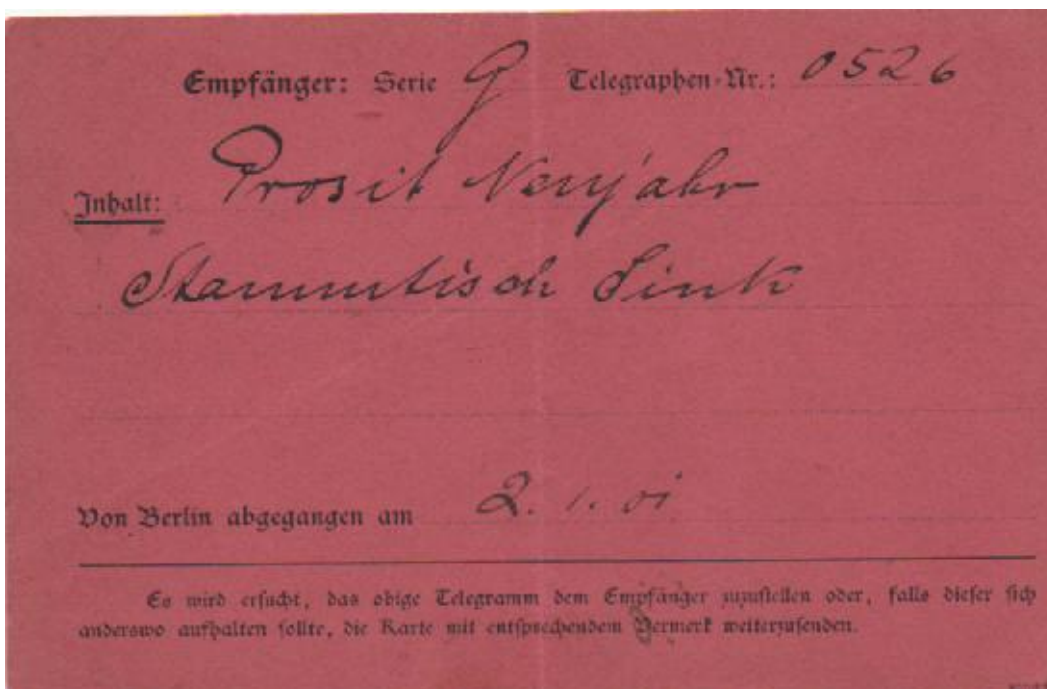 Empfänger: Serie G Telegraphen-Nr.: 0526
Inhalt: Prosit Neujahr
Stammtisch Fink
Von Berlin abgegangen am 2. 1. 01
Es wird ersucht, das obige Telegramm dem Empfänger zuzustellen oder, falls dieser sich
anderswo aufhalten sollte, die Karte mit entsprechendem Vermerk weiterzusenden.